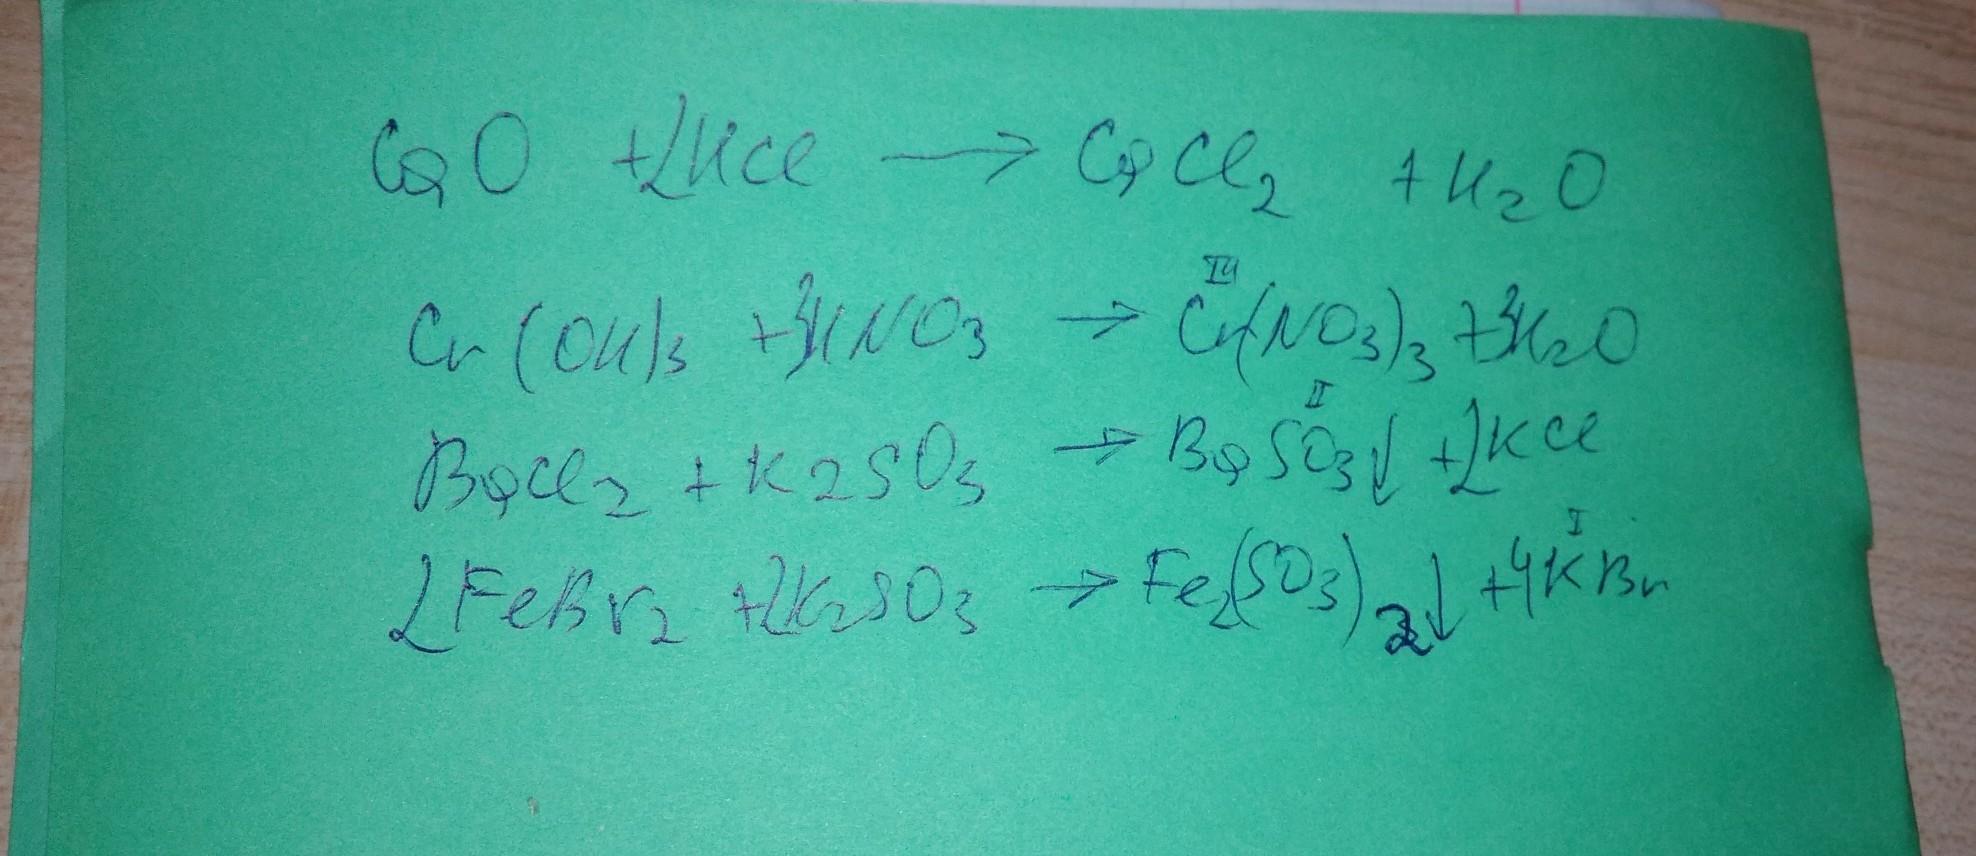 CaO +2HCl → CaCl₂ +H₂O
Cr(OH)₃ +3HNO₃ → Cr^III(NO₃)₃ +3H₂O
BaCl₂ +K2SO₃ → BaSO₃^II↓ +2KCl
2FeBr₂ +2K₂SO₃ → Fe₂(SO₃)₂↓ +4K^IBr